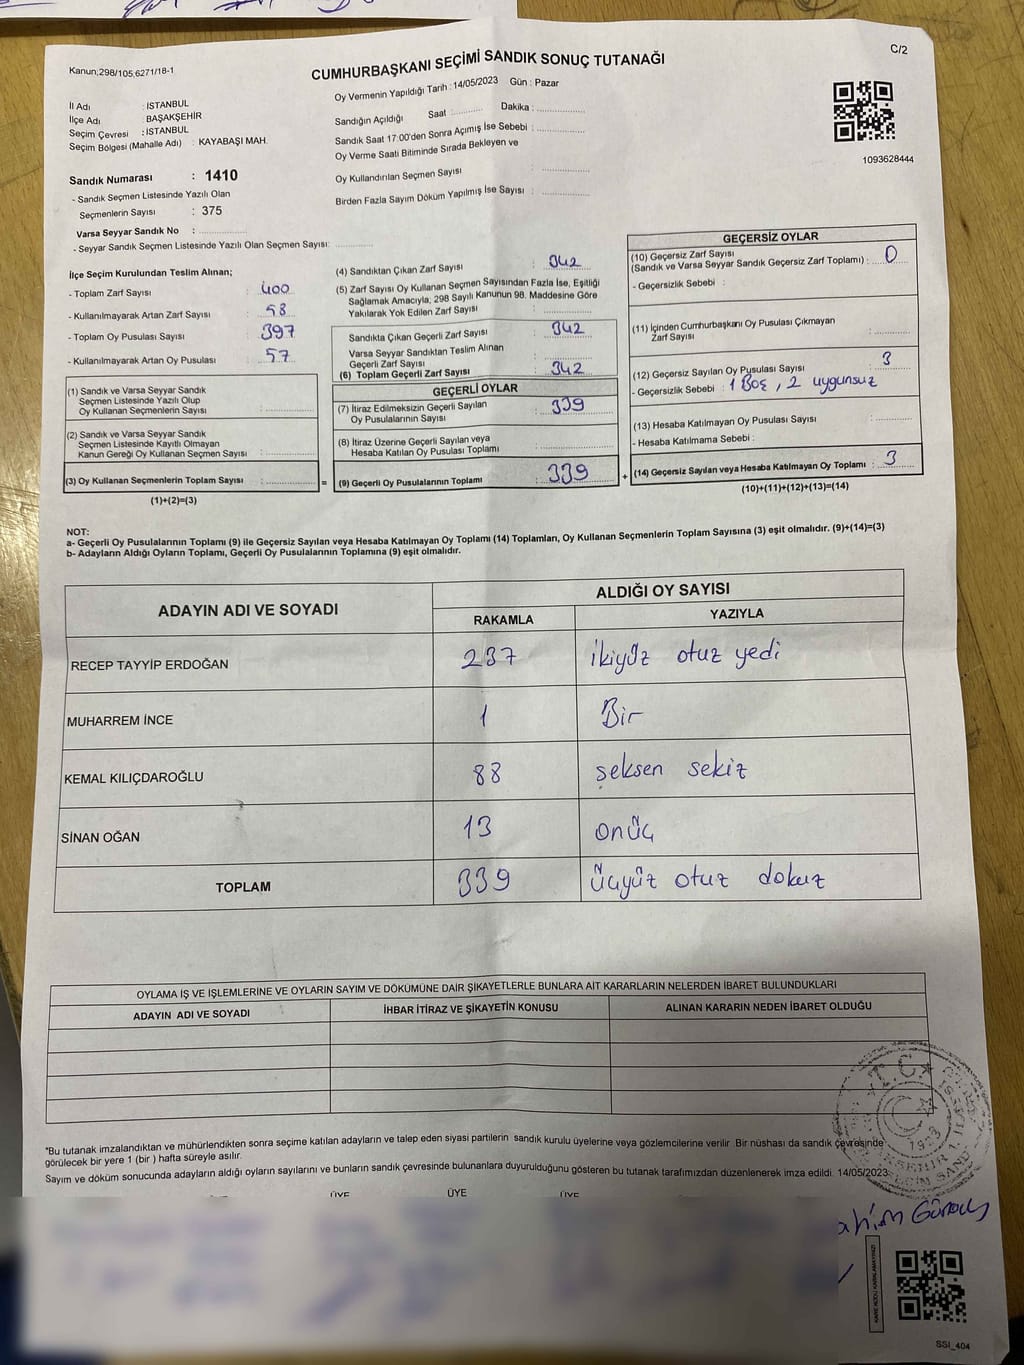 Kanun;298/105,6271/18-1
CUMHURBAŞKANI SEÇİMİ SANDIK SONUÇ TUTANAĞI
C/2
İl Adı : İSTANBUL
İlçe Adı : BAŞAKŞEHİR
Seçim Çevresi : İSTANBUL
Seçim Bölgesi (Mahalle Adı) : KAYABAŞI MAH.
Sandık Numarası : 1410
- Sandık Seçmen Listesinde Yazılı Olan
Seçmenlerin Sayısı : 375
Varsa Seyyar Sandık No : ..............
- Seyyar Sandık Seçmen Listesinde Yazılı Olan Seçmen Sayısı: ............
Oy Vermenin Yapıldığı Tarih : 14/05/2023 Gün : Pazar
Sandığın Açıldığı Saat : .......... Dakika : ..............
Sandık Saat 17:00'den Sonra Açımış İse Sebebi : ..............
Oy Verme Saati Bitiminde Sırada Bekleyen ve
Oy Kullandırılan Seçmen Sayısı : ..............
Birden Fazla Sayım Döküm Yapılmış İse Sayısı : ..............
1093628444
İlçe Seçim Kurulundan Teslim Alınan;
- Toplam Zarf Sayısı : 400
- Kullanılmayarak Artan Zarf Sayısı : 58
- Toplam Oy Pusulası Sayısı : 397
- Kullanılmayarak Artan Oy Pusulası : 57
(1) Sandık ve Varsa Seyyar Sandık
Seçmen Listesinde Yazılı Olup
Oy Kullanan Seçmenlerin Sayısı : ..............
(2) Sandık ve Varsa Seyyar Sandık
Seçmen Listesinde Kayıtlı Olmayan
Kanun Gereği Oy Kullanan Seçmen Sayısı : ..............
(3) Oy Kullanan Seçmenlerin Toplam Sayısı : ..............
(1)+(2)=(3)
=
(4) Sandıktan Çıkan Zarf Sayısı : 342
(5) Zarf Sayısı Oy Kullanan Seçmen Sayısından Fazla İse, Eşitliği
Sağlamak Amacıyla; 298 Sayılı Kanunun 98. Maddesine Göre
Yakılarak Yok Edilen Zarf Sayısı : ..............
Sandıkta Çıkan Geçerli Zarf Sayısı : 342
Varsa Seyyar Sandıktan Teslim Alınan
Geçerli Zarf Sayısı : ..............
(6) Toplam Geçerli Zarf Sayısı : 342
GEÇERLİ OYLAR
(7) İtiraz Edilmeksizin Geçerli Sayılan
Oy Pusulalarının Sayısı : 339
(8) İtiraz Üzerine Geçerli Sayılan veya
Hesaba Katılan Oy Pusulası Toplamı : ..............
(9) Geçerli Oy Pusulalarının Toplamı : 339
+
GEÇERSİZ OYLAR
(10) Geçersiz Zarf Sayısı
(Sandık ve Varsa Seyyar Sandık Geçersiz Zarf Toplamı) : 0
- Geçersizlik Sebebi :
(11) İçinden Cumhurbaşkanı Oy Pusulası Çıkmayan
Zarf Sayısı : ..............
(12) Geçersiz Sayılan Oy Pusulası Sayısı : 3
- Geçersizlik Sebebi : 1 Boş , 2 uygunsuz
(13) Hesaba Katılmayan Oy Pusulası Sayısı : ..............
- Hesaba Katılmama Sebebi :
(14) Geçersiz Sayılan veya Hesaba Katılmayan Oy Toplamı : 3
(10)+(11)+(12)+(13)=(14)
NOT:
a- Geçerli Oy Pusulalarının Toplamı (9) ile Geçersiz Sayılan veya Hesaba Katılmayan Oy Toplamı (14) Toplamları, Oy Kullanan Seçmenlerin Toplam Sayısına (3) eşit olmalıdır. (9)+(14)=(3)
b- Adayların Aldığı Oyların Toplamı, Geçerli Oy Pusulalarının Toplamına (9) eşit olmalıdır.
ADAYIN ADI VE SOYADI
ALDIĞI OY SAYISI
RAKAMLA YAZIYLA
RECEP TAYYİP ERDOĞAN 237 ikiyüz otuz yedi
MUHARREM İNCE 1 Bir
KEMAL KILIÇDAROĞLU 88 seksen sekiz
SİNAN OĞAN 13 onüç
TOPLAM 339 üçyüz otuz dokuz
OYLAMA İŞ VE İŞLEMLERİNE VE OYLARIN SAYIM VE DÖKÜMÜNE DAİR ŞİKAYETLERLE BUNLARA AİT KARARLARIN NELERDEN İBARET BULUNDUKLARI
ADAYIN ADI VE SOYADI İHBAR İTİRAZ VE ŞİKAYETİN KONUSU ALINAN KARARIN NEDEN İBARET OLDUĞU
*Bu tutanak imzalandıktan ve mühürlendikten sonra seçime katılan adayların ve talep eden siyasi partilerin sandık kurulu üyelerine veya gözlemcilerine verilir. Bir nüshası da sandık çevresinde
görülecek bir yere 1 (bir ) hafta süreyle asılır.
Sayım ve döküm sonucunda adayların aldığı oyların sayılarını ve bunların sandık çevresinde bulunanlara duyurulduğunu gösteren bu tutanak tarafımızdan düzenlenerek imza edildi. 14/05/2023
T.C.
1923
ÜYE ÜYE ÜYE
SSİ_404